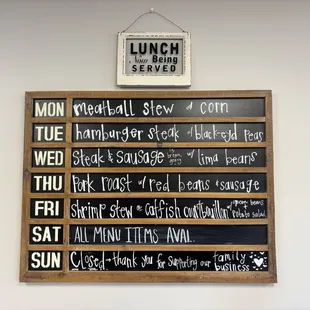 LUNCH
Now Being
SERVED
MON meatball stew w/ corn
TUE hamburger steak w/ black-eyed peas
WED Steak & Sausage in brown gravy w/ lima beans
THU Pork roast w/ red beans & sausage
FRI Shrimp stew or Catfish courtbouillon w/ green beans + potato salad
SAT ALL MENU ITEMS AVAIL.
SUN Closed → thank you for supporting our family business